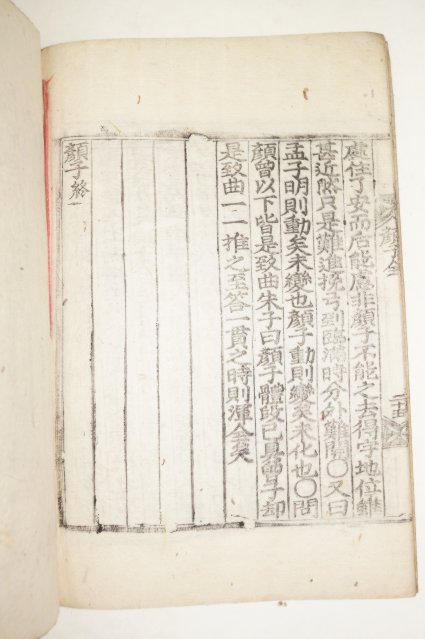 處住了安而后能慮非顔子不能之去得字地位雖
甚近然只是難進挽弓到臨滿時分外難開〇又曰
孟子明則動矣未變也顔子動則變矣未化也〇問
顔曾以下皆是致曲朱子曰顔子體段已具曾子却
是致曲一一推之至答一貫之時則渾全矣
顔子終